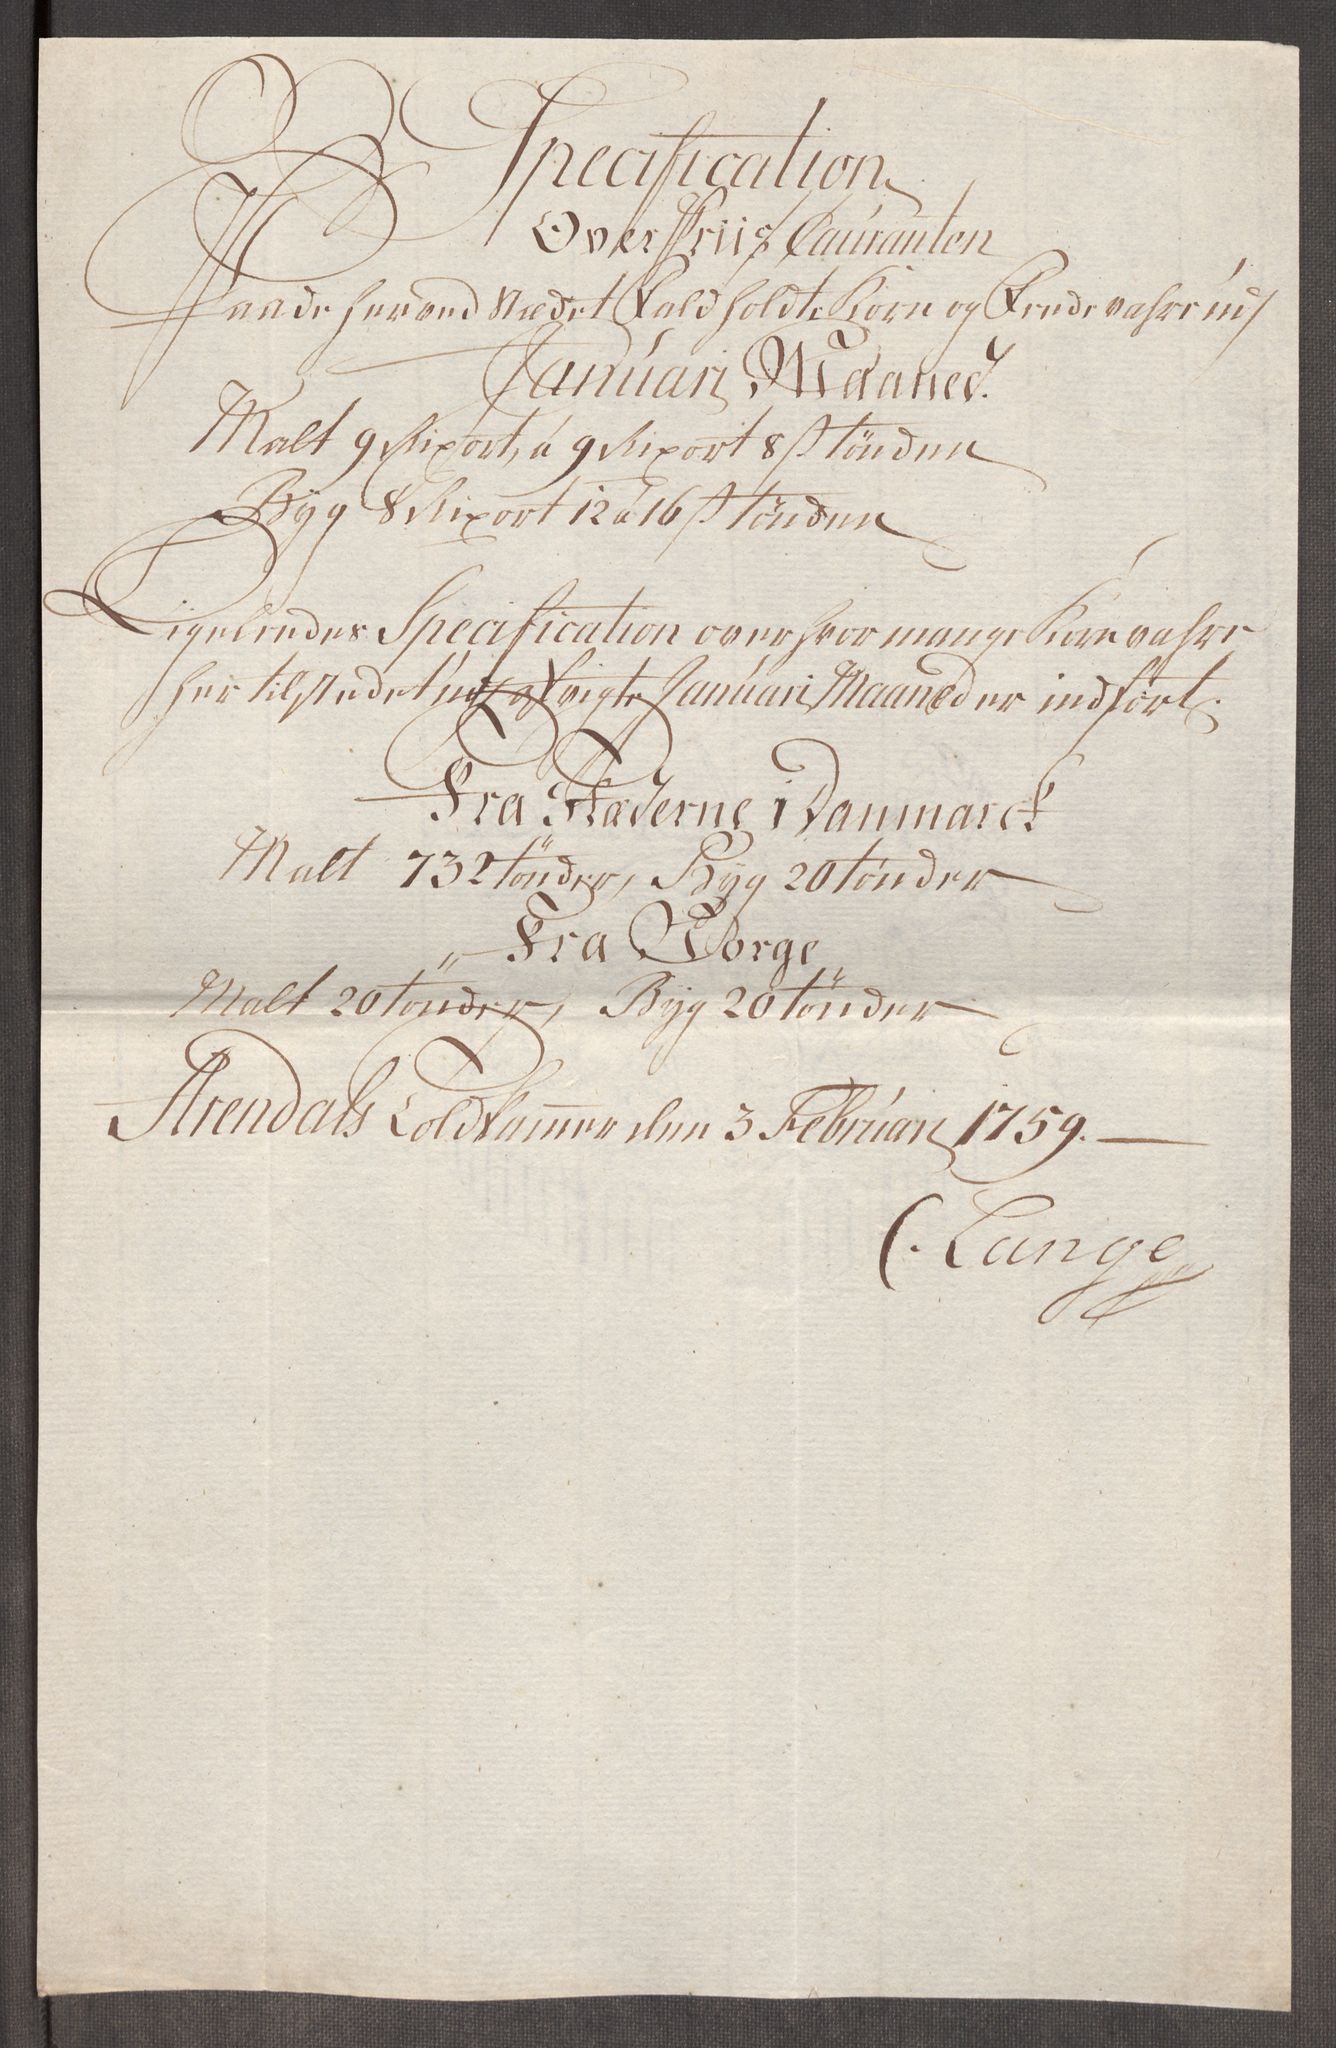 Specification
Over Priis Couranten
Paa de her ved Stædet Fald holdte Korn og Fede vahre udj
Januari Maaned.
Malt 9 Rixort, á 9 Rixort 8 s tönden
Byg 8 Rixort 12 á 16 s tönden
Ligeleedes Specification over hvor mange Korn vahre
her til stedet udj afvigte Januari Maaned er indfört.
Fra Stæderne i Danmarck
Malt 732 tönder, Byg 20 tönder
Fra Norge
Malt 20 tönder, Byg 20 tönder
Arendals Toldkammer den 3 Februari 1759.
C. Lange